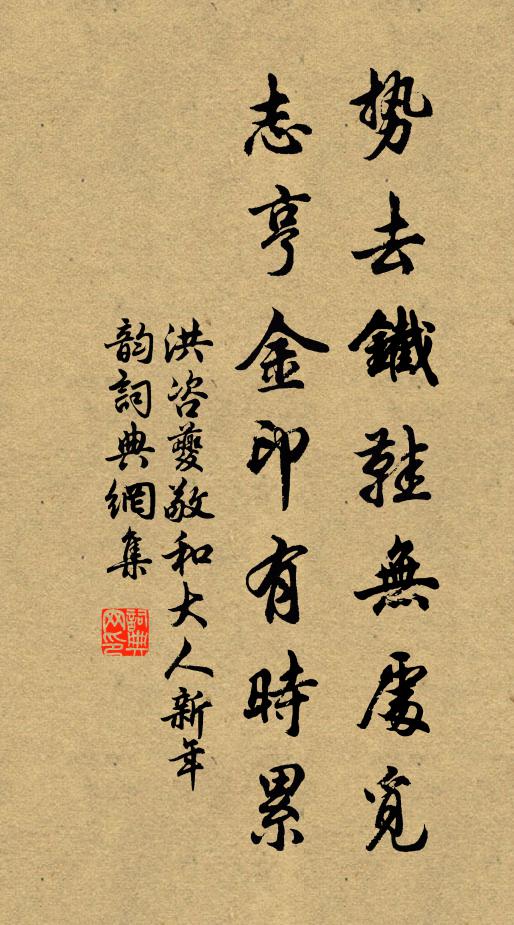 勢去鐵鞋無處覓
志亨金印有時累
洪咨夔敬和大人新年
韵詞典網集
詞典網印